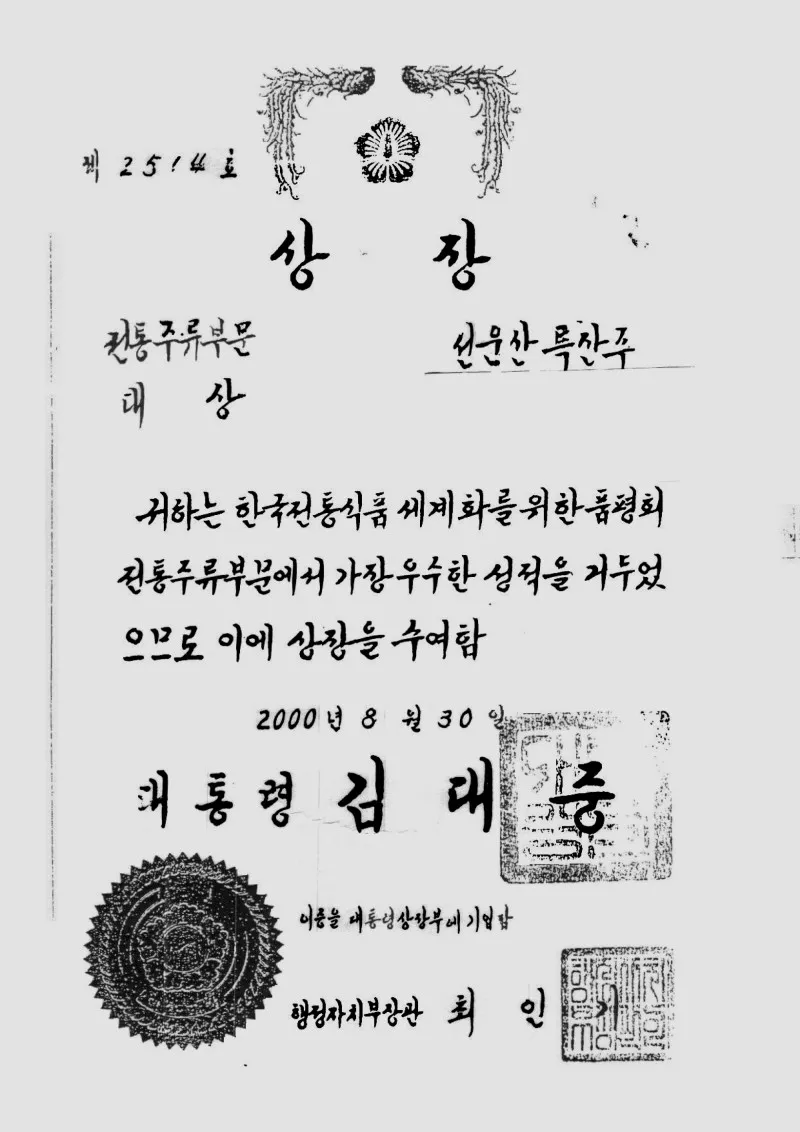 제 2514 호
상 장
전통주류부문
대 상
선운산특산주
귀하는 한국전통식품 세계화를 위한 품평회
전통주류부문에서 가장 우수한 성적을 거두었
으므로 이에 상장을 수여함
2000년 8월 30일
대통령 김대중
이증을 대통령상장부에 기입함
행정자치부장관 최인기